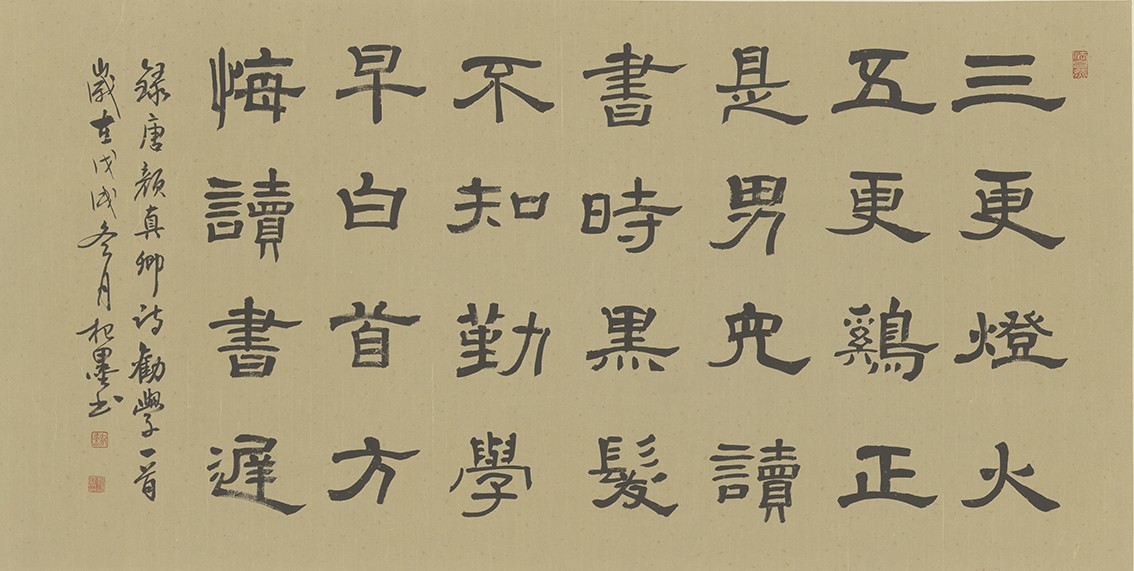 三更燈火
五更鷄正
是男兒讀
書時黑髮
不知勤學
早白首方
悔讀書遲
録唐顔真卿诗勸學一首
歲在戊戌冬月墨书